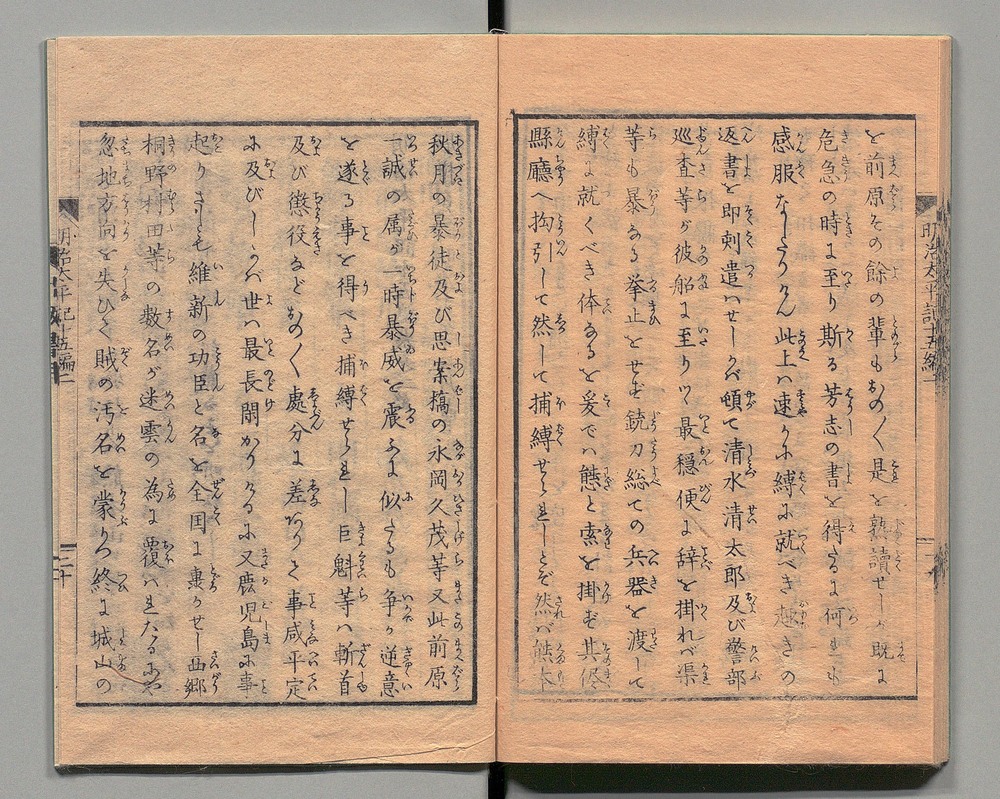 を前原その餘の輩もおの〱是を熟讀せしが既に
危急の時に至り斯る芳志の書を得たるに何れも
感服なしたりけん此上ハ速かに縛に就べき趣きの
返書を即刺遣ハせしかバ頓て清水清太郎及び警部
巡査等が彼船に至りツヽ最穏便に辞を掛れバ渠
等も暴なる挙止をせず銃刀総ての兵器を渡して
縛に就くべき体なるを爰でハ態と索を掛ず其侭
縣廳へ拘引して然して捕縛せられしとぞ然バ熊本
秋月の暴徒及び思案橋の永岡久茂等又此前原
一誠の属が一時暴威を震ふに似たるも争か逆意
を遂る事を得べき捕縛せられし巨魁等ハ斬首
及び懲役などおの〱處分に差ありて事咸平定
に及びしかバ世ハ最長閑かりけるに又鹿児島に事
起りさしも維新の功臣と名を全国に轟かせし西郷
桐野村田等の数名が迷雲の為に覆ハれたるにや
忽地方向を失ひて賊の汚名を蒙りつ終に城山の
明治太平記十五編二
明治太平記十五編二
二十